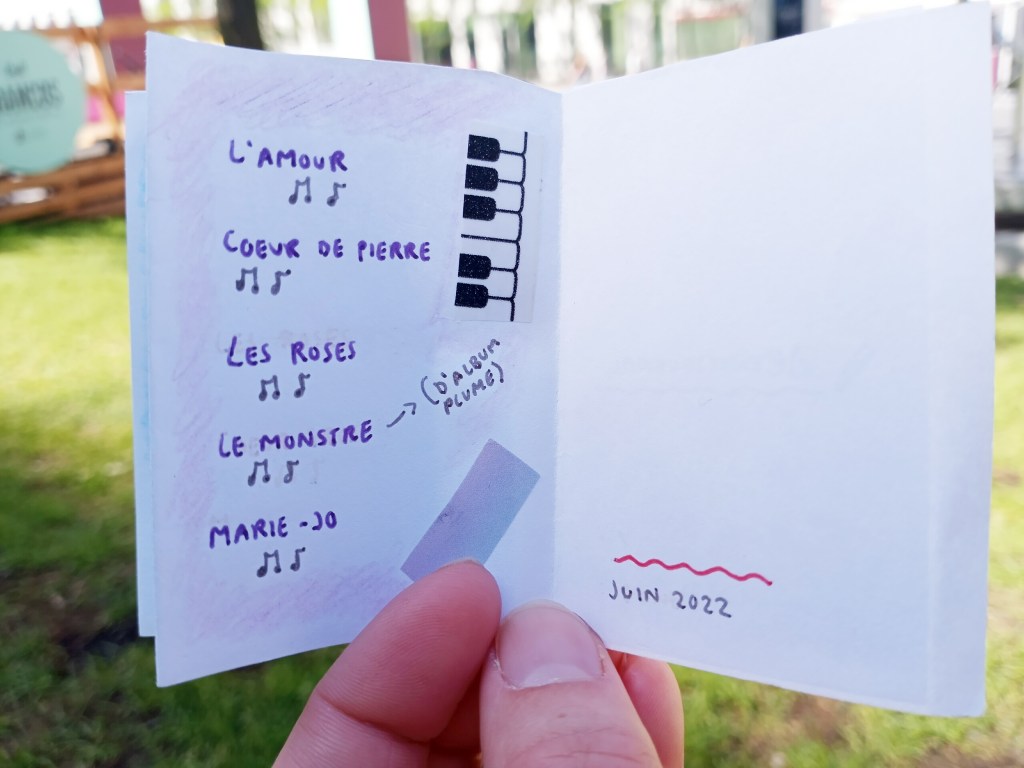 L'AMOUR
COEUR DE PIERRE
LES ROSES
LE MONSTRE → (D'ALBUM
PLUME)
MARIE-JO
JUIN 2022